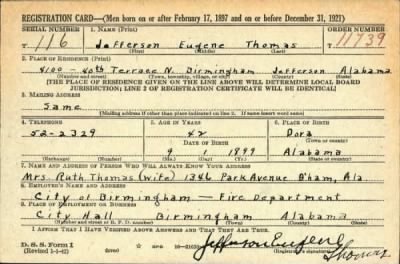 REGISTRATION CARD—(Men born on or after February 17, 1897 and on or before December 31, 1921)
SERIAL NUMBER 1. NAME (Print) ORDER NUMBER
T 116 Jefferson Eugene Thomas 11739
(First) (Middle) (Last)
2. PLACE OF RESIDENCE (Print)
4100 - 40th Terrace N. Birmingham Jefferson Alabama
(Number and street) (Town, township, village, or city) (County) (State)
[THE PLACE OF RESIDENCE GIVEN ON THE LINE ABOVE WILL DETERMINE LOCAL BOARD
JURISDICTION; LINE 2 OF REGISTRATION CERTIFICATE WILL BE IDENTICAL]
3. MAILING ADDRESS
Same
(Mailing address if other than place indicated on line 2. If same insert word same)
4. TELEPHONE 5. AGE IN YEARS 6. PLACE OF BIRTH
52-2329 42 Dora
DATE OF BIRTH (Town or county)
9 1 1899 Alabama
(Exchange) (Number) (Mo.) (Day) (Yr.) (State or country)
7. NAME AND ADDRESS OF PERSON WHO WILL ALWAYS KNOW YOUR ADDRESS
Mrs. Ruth Thomas (wife) 1346 Park Avenue B'ham, Ala
8. EMPLOYER'S NAME AND ADDRESS
City of Birmingham — Fire Department
9. PLACE OF EMPLOYMENT OR BUSINESS
City Hall Birmingham Alabama
(Number and street or R. F. D. number) (Town) (County) (State)
I AFFIRM THAT I HAVE VERIFIED ABOVE ANSWERS AND THAT THEY ARE TRUE.
D. S. S. Form 1
(Revised 1-1-42) (over)
Jefferson Eugene
Thomas